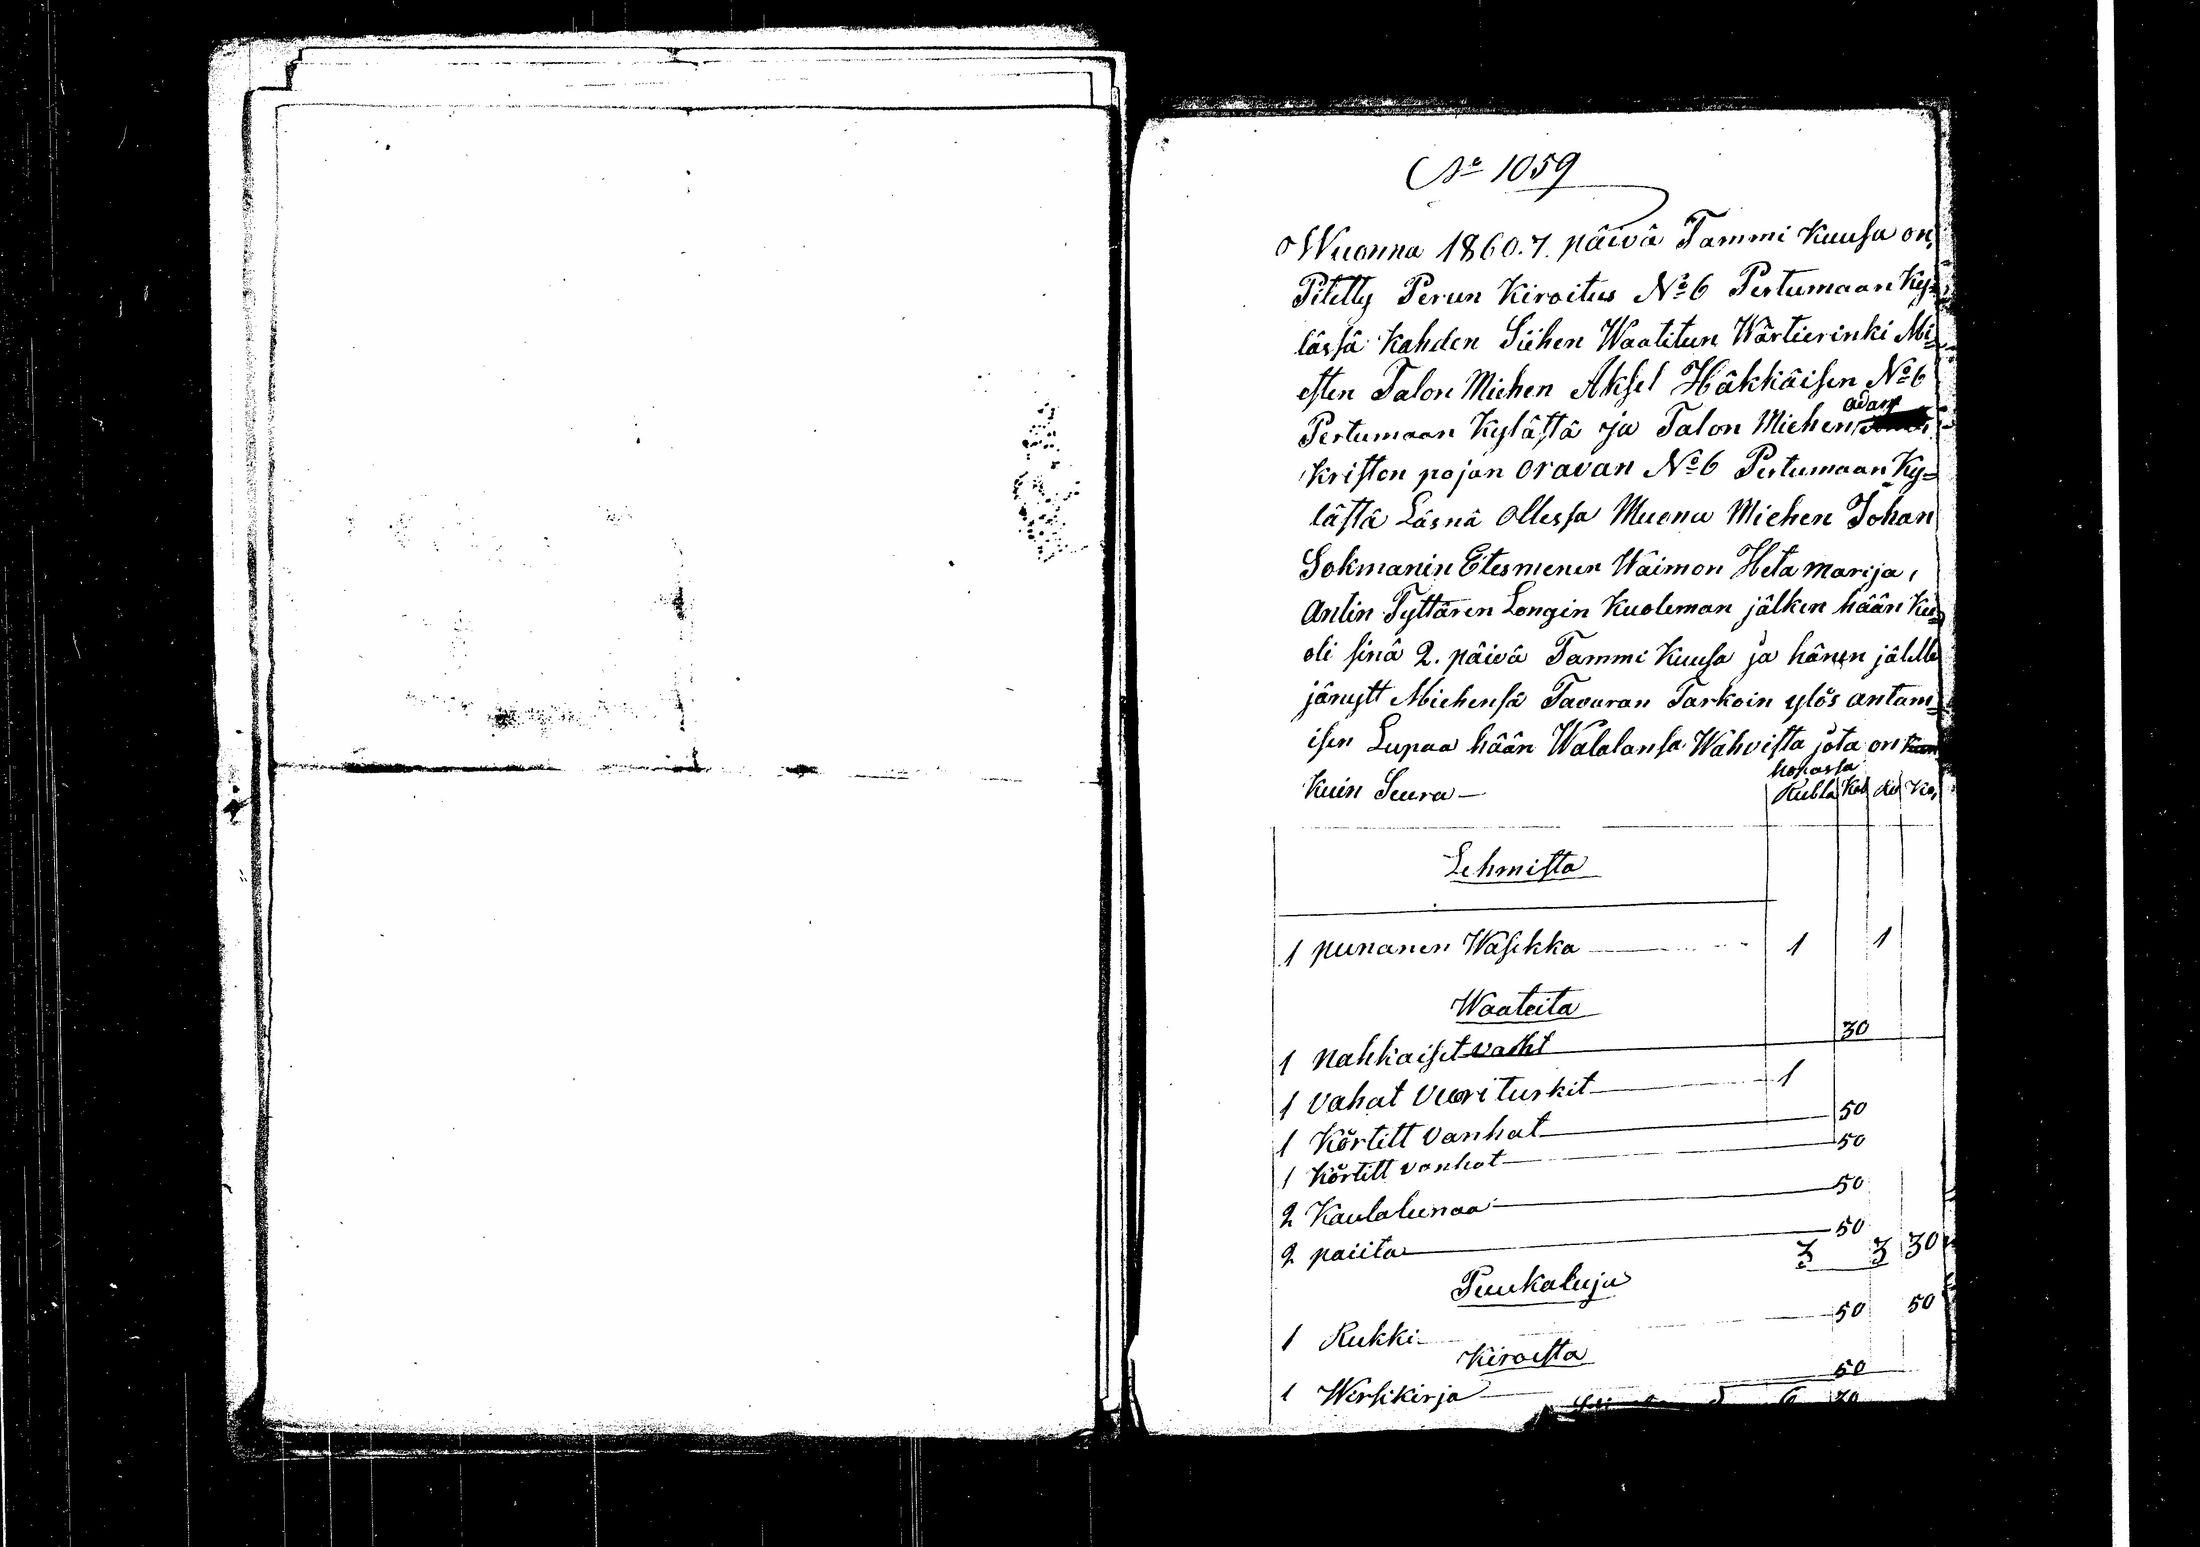 No 1059
Wuonna 1860. 7. päivä Tammi Kuusa on,
Piletty Perun Kiroitus No 6 Pertumaan Ky-
lässä Kahden Siihen Waatitun Wärtierinki Mi-
esten Talon Miehen Aksel Häkkäisen No 6
Pertumaan Kylästä ja Talon Miehen adam
Kriston pojan oravan No 6 Pertumaan Ky=
lästä Läsnä ollessa Muonu Miehen Johan
Sokmanin Etesmenen Waimon Heta marija,
Antin Tyttären Longin Kuoleman jälken hään Ku=
oli sinä 2. päivä Tammi Kuusa ja hänen jälelle
jänytt Miehensä Tavaran Tarkoin ylös antam=
isen Lupaa hään Walalansa Wahvista jota on
Kuin Seura —
hopassa
Rubla Kob Ru Ko,
Lehmista
1 punanen Wasikka 1 1
Waateita
1 nahkaiset vatet 30
1 vahat vuori turkit 1
1 Körtitt vanhat 50
1 Körtitt vanhat 50
2 Kaulalunaa 50
2 paiita 50
3 3 30
Puukaluja
1 Rukki 50 50
Kiroista
1 Wersikirja 50
6 70